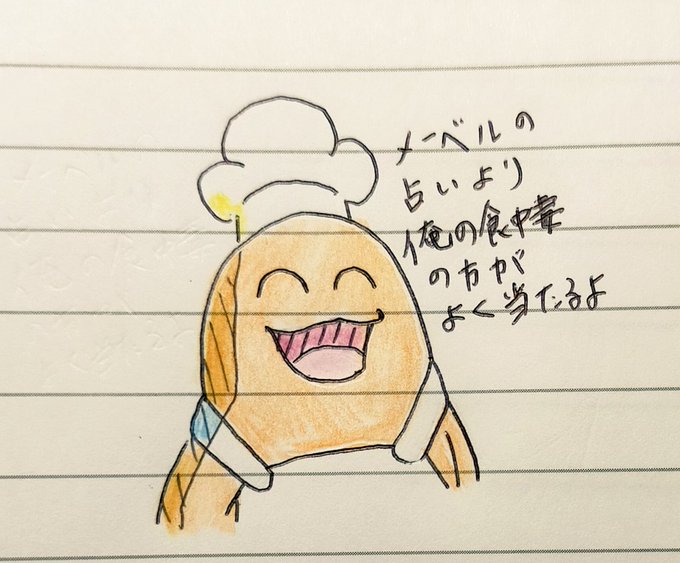 メーベルの
占いより
俺の食中毒
の方が
よく当たるよ